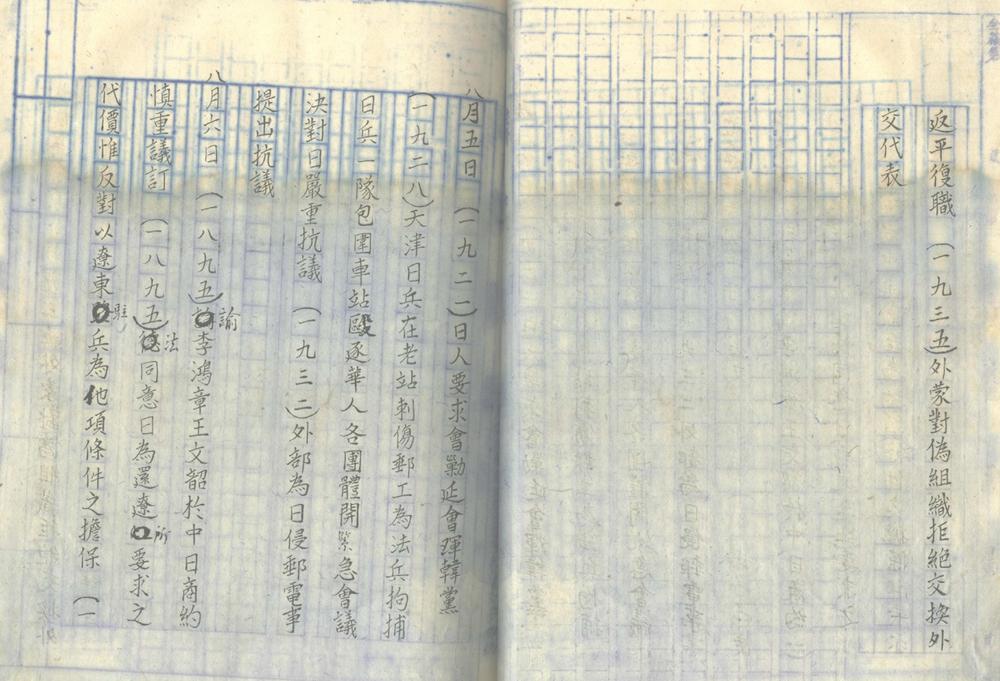 返平復職 (一九三五)外蒙對偽組織拒絕交換外
交代表
八月五日 (一九二二)日人要求會勦延會琿韓黨
(一九二八)天津日兵在老站刺傷郵工為法兵拘捕
日兵一隊包圍車站毆逐華人各團體開緊急會議
決對日嚴重抗議 (一九三二)外部為日侵郵電事
提出抗議
八月六日 (一八九五)諭李鴻章王文韶於中日商約
慎重議訂 (一八九五)法同意日為還遼所要求之
代價惟反對以遼東駐兵為他項條件之擔保 (一